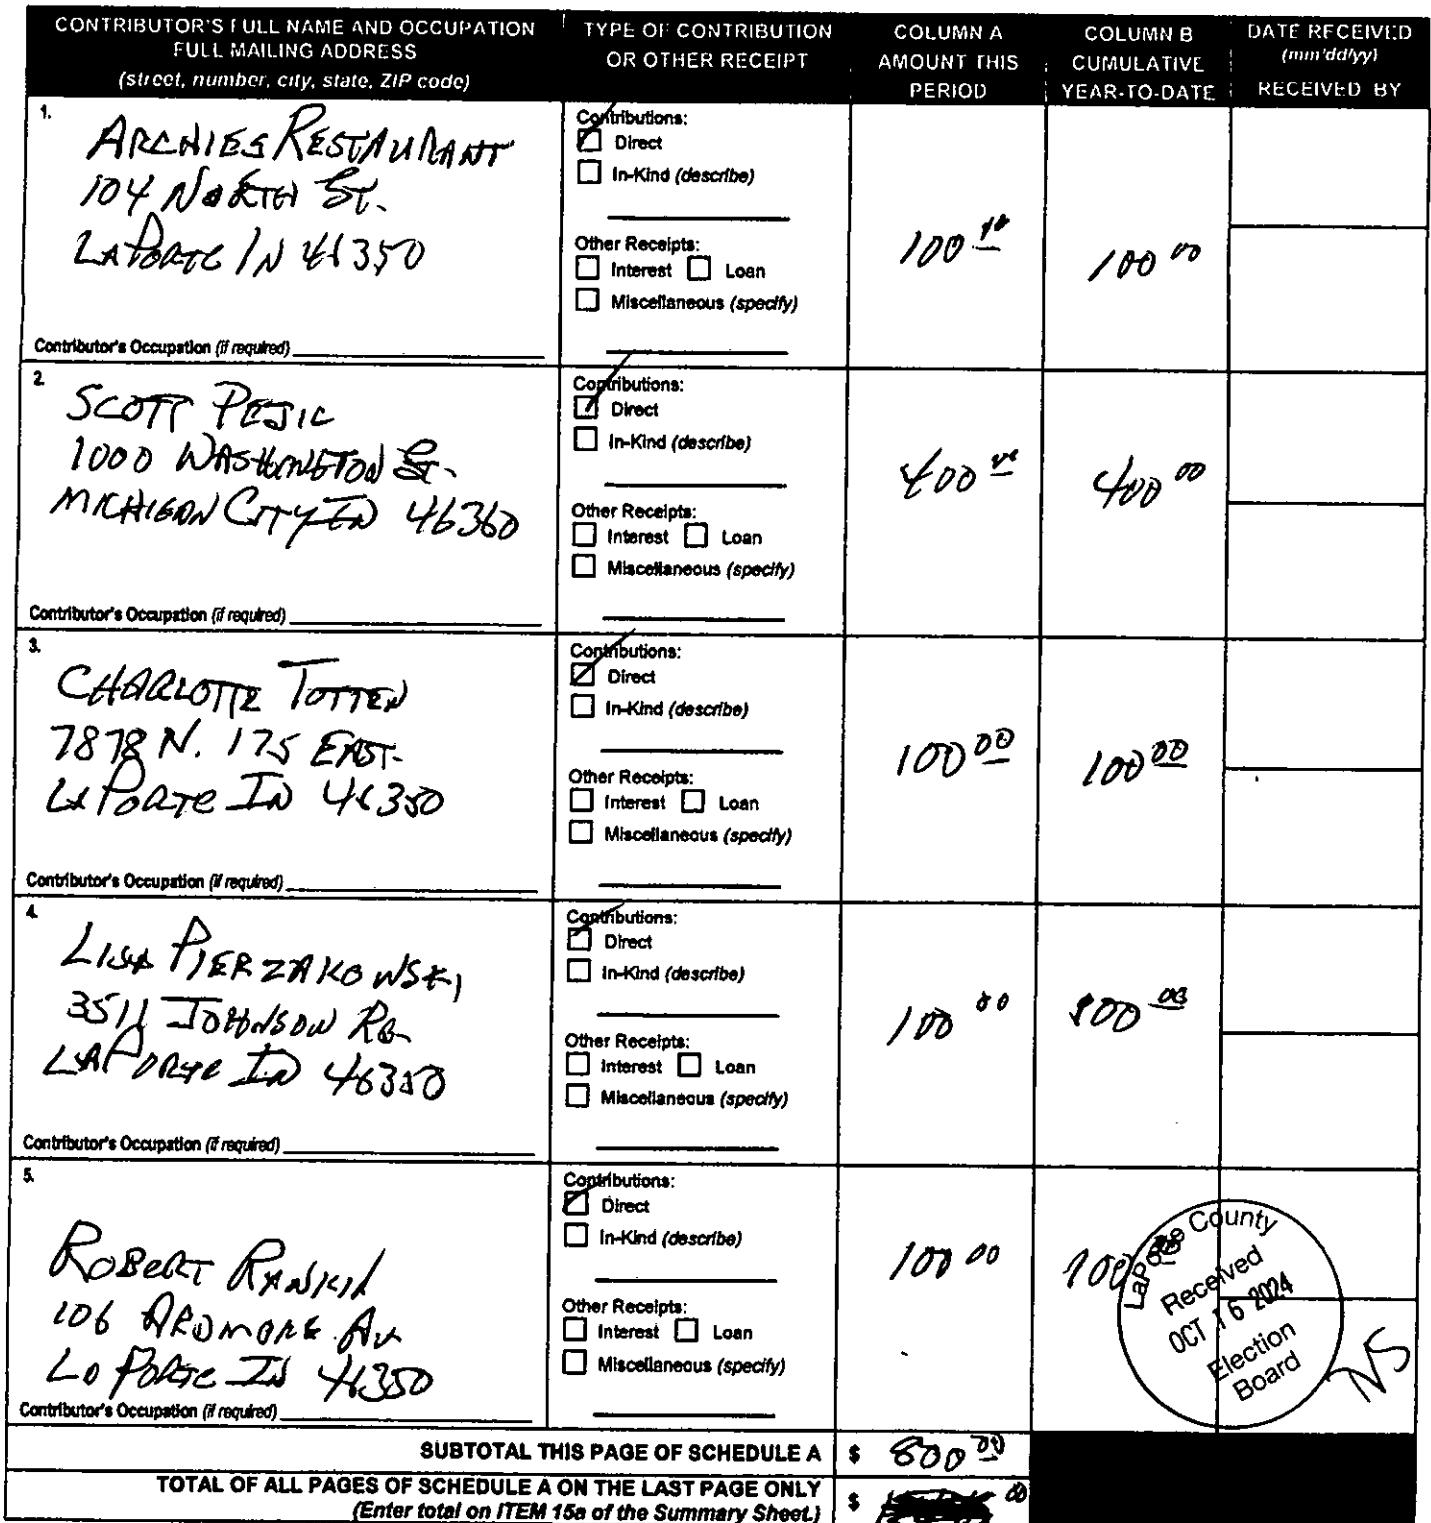 CONTRIBUTOR'S FULL NAME AND OCCUPATION
FULL MAILING ADDRESS
(street, number, city, state, ZIP code)
TYPE OF CONTRIBUTION
OR OTHER RECEIPT
COLUMN A
AMOUNT THIS
PERIOD
COLUMN B
CUMULATIVE
YEAR-TO-DATE
DATE RECEIVED
(mm/dd/yy)
RECEIVED BY
1.
ARCHIES RESTAURANT
104 NORTH ST.
LAPORTE IN 46350
Contributor's Occupation (if required)
Contributions:
Direct
In-Kind (describe)
Other Receipts:
Interest Loan
Miscellaneous (specify)
100 00
100 00
2.
SCOTT PEJIC
1000 WASHINGTON ST.
MICHIGAN CITY IN 46360
Contributor's Occupation (if required)
Contributions:
Direct
In-Kind (describe)
Other Receipts:
Interest Loan
Miscellaneous (specify)
400 00
400 00
3.
CHARLOTTE TOTTEN
7878 N. 175 EAST.
LAPORTE IN 46350
Contributor's Occupation (if required)
Contributions:
Direct
In-Kind (describe)
Other Receipts:
Interest Loan
Miscellaneous (specify)
100 00
100 00
4.
LISA PIERZAKOWSKI
3511 JOHNSON RD.
LAPORTE IN 46350
Contributor's Occupation (if required)
Contributions:
Direct
In-Kind (describe)
Other Receipts:
Interest Loan
Miscellaneous (specify)
100 00
00
5.
ROBERT RANKIN
106 ARDMORE AV
LAPORTE IN 46350
Contributor's Occupation (if required)
Contributions:
Direct
In-Kind (describe)
Other Receipts:
Interest Loan
Miscellaneous (specify)
100 00
100
LaPorte County
Received
OCT 16 2024
Election
Board
NS
SUBTOTAL THIS PAGE OF SCHEDULE A $ 800 00
TOTAL OF ALL PAGES OF SCHEDULE A ON THE LAST PAGE ONLY
(Enter total on ITEM 15a of the Summary Sheet.) $ 00